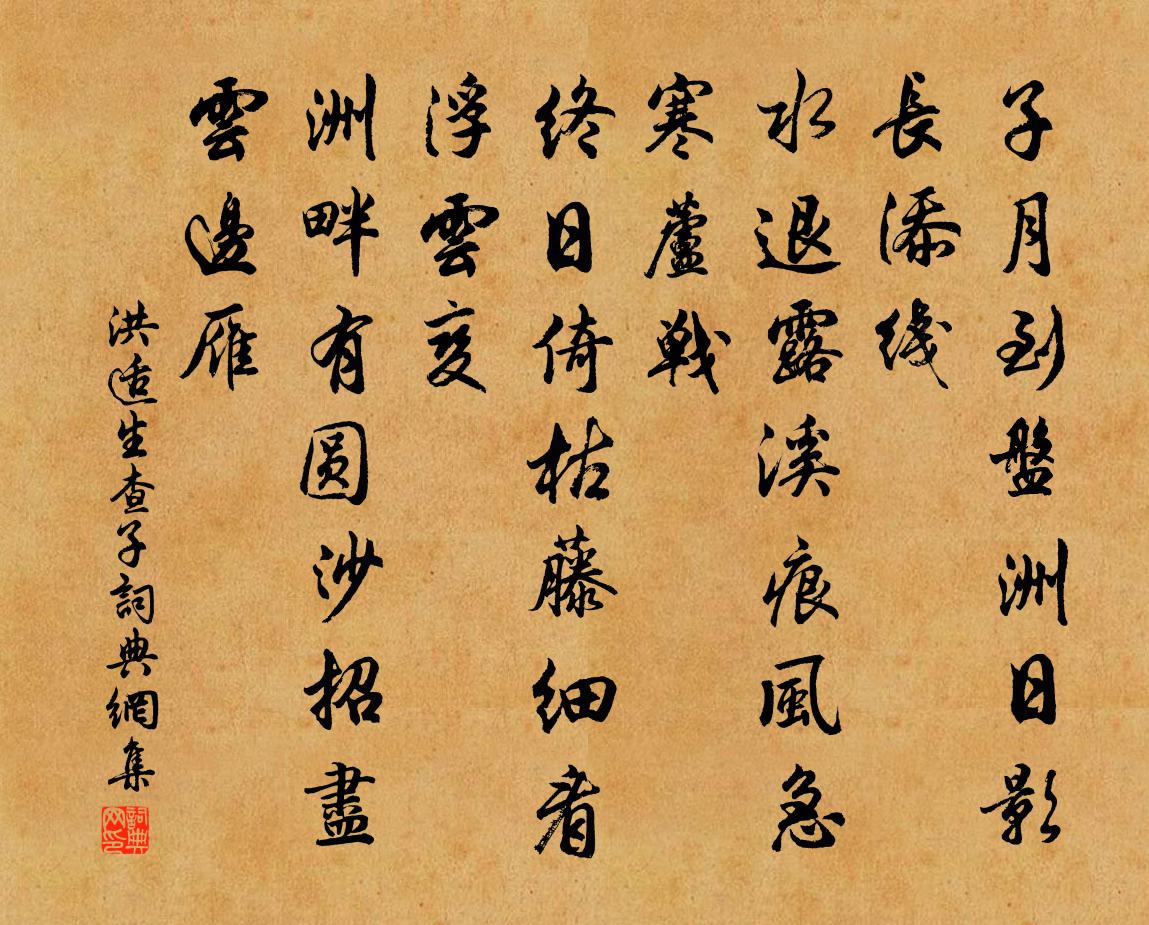 子月到盤洲日影
長添綫
水退露溪痕風急
寒蘆戰
終日倚枯藤細看
浮雲变
洲畔有圆沙招盡
雲邊雁
洪适生查子詞典網集
詞典网印